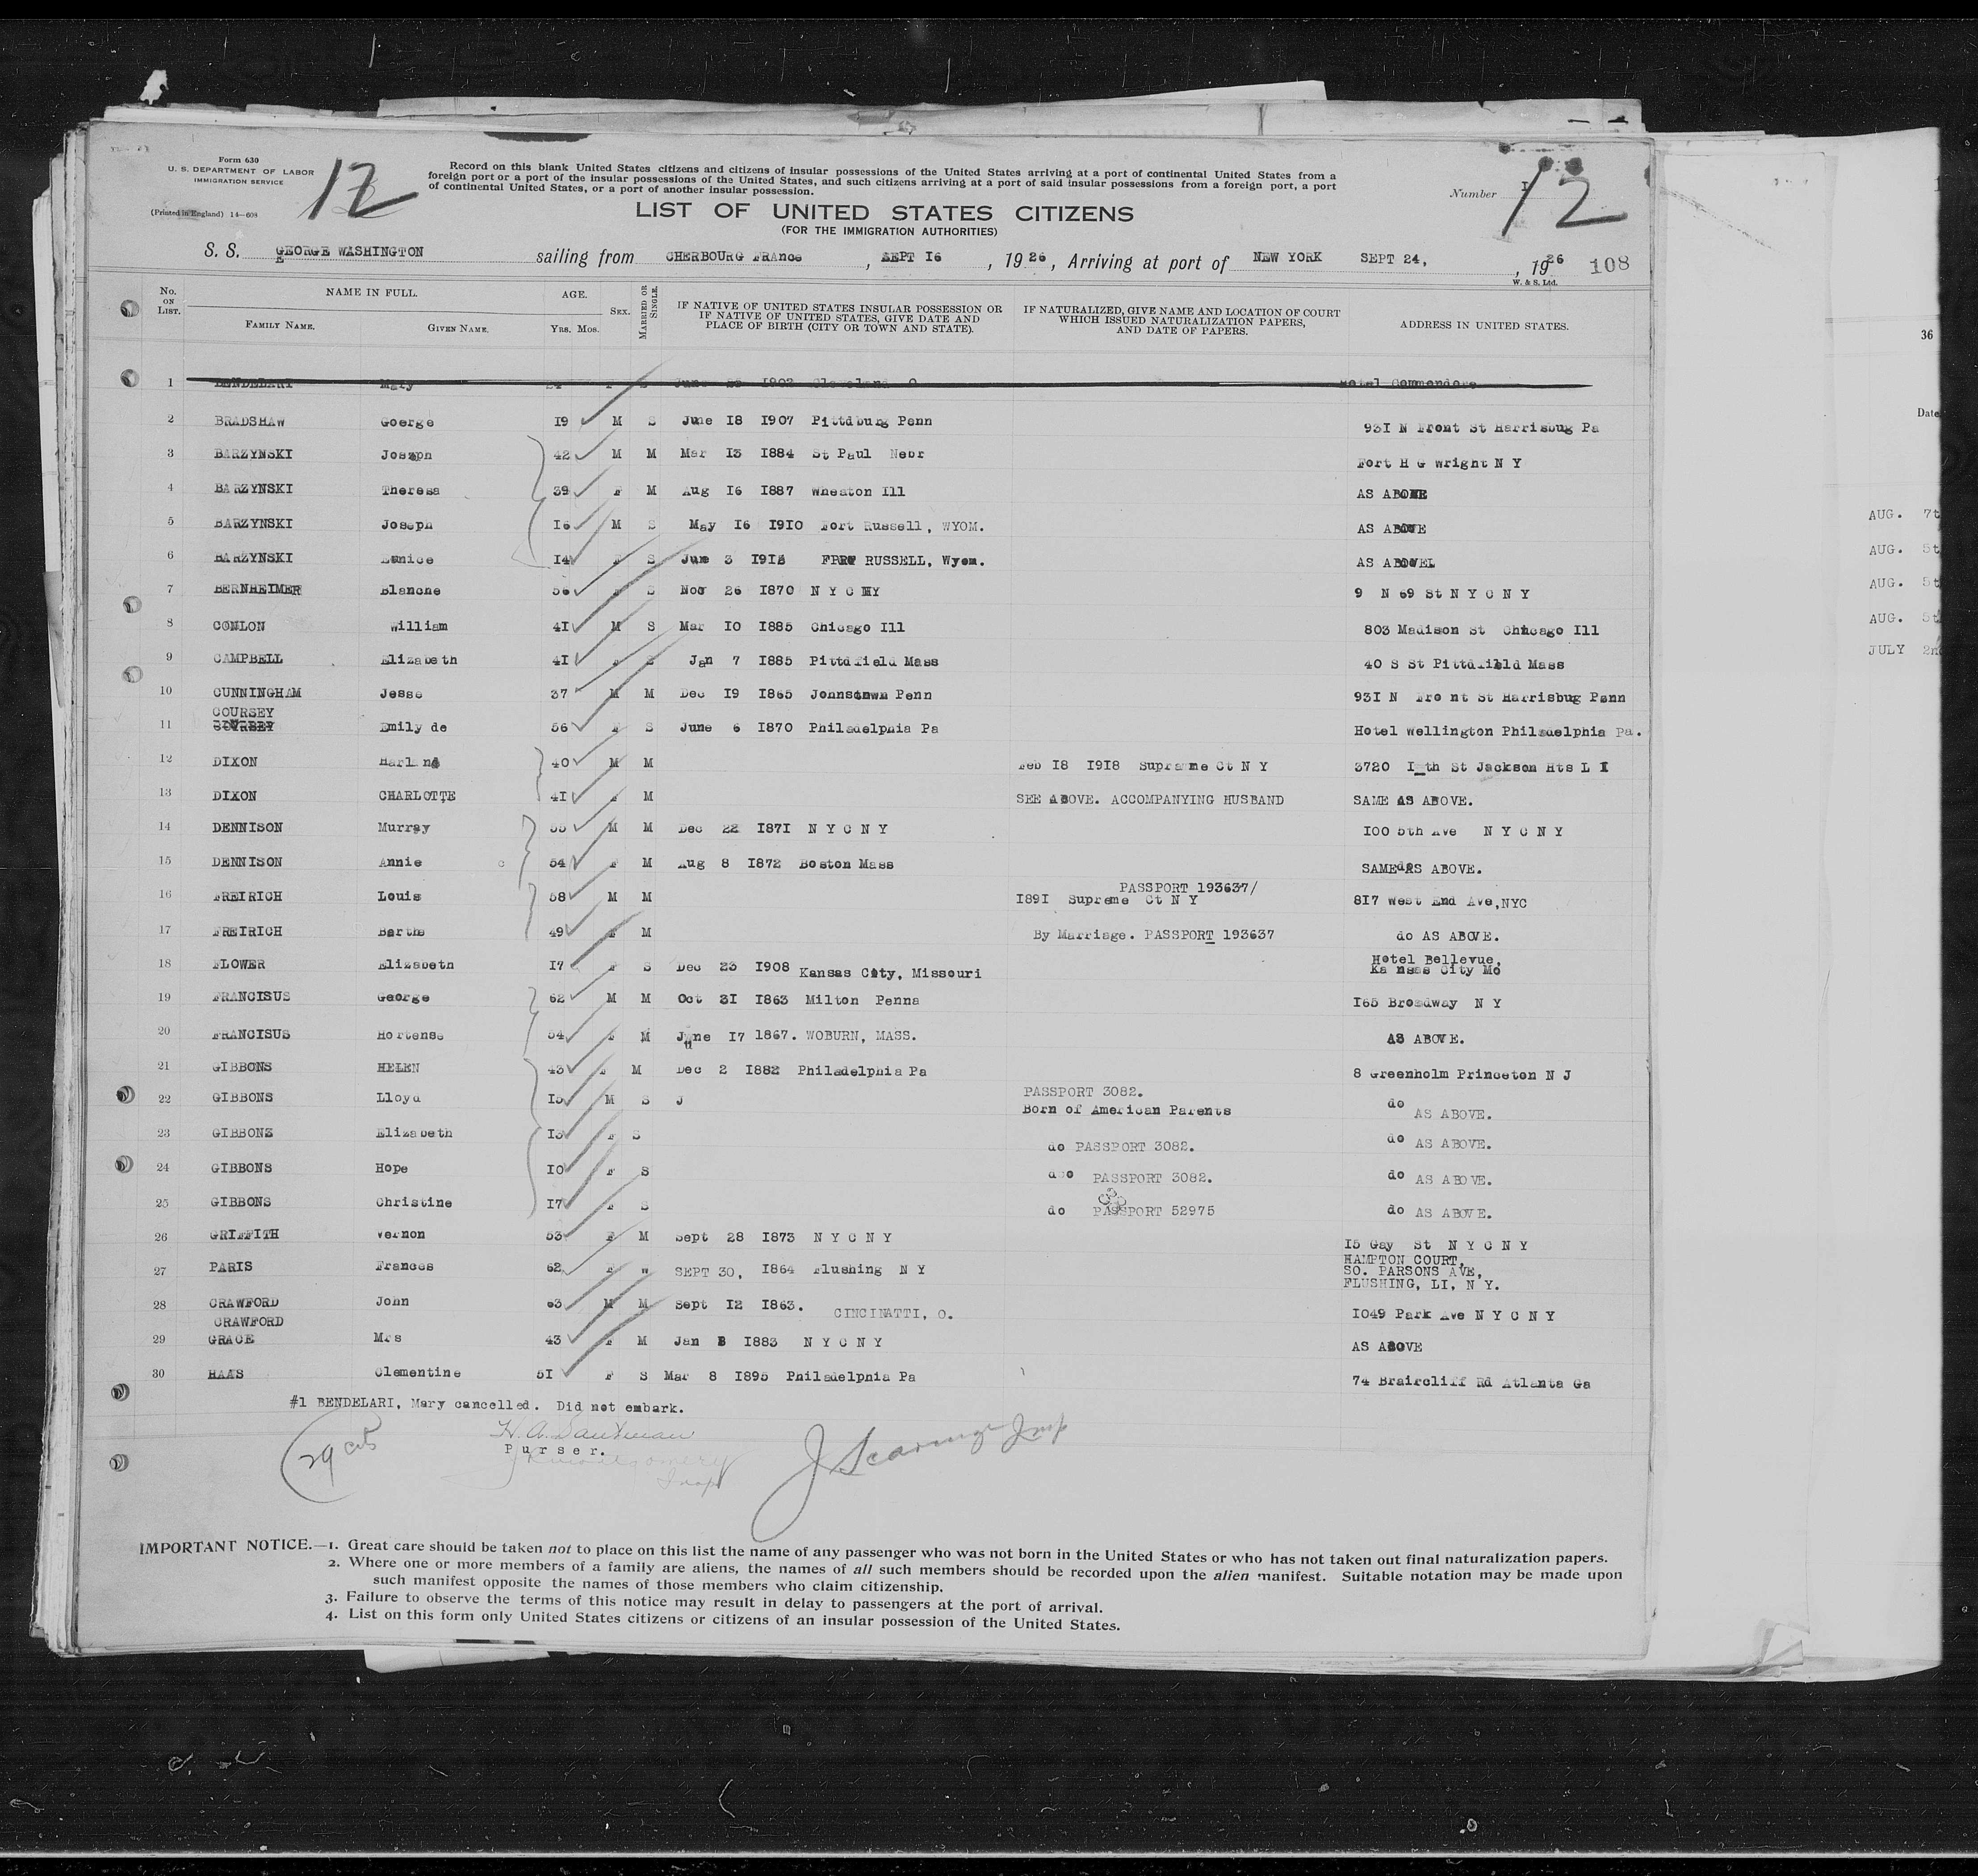 Form 630
U. S. DEPARTMENT OF LABOR
IMMIGRATION SERVICE
(Printed in England) 14—608
12
Record on this blank United States citizens and citizens of insular possessions of the United States arriving at a port of continental United States from a
foreign port or a port of the insular possessions of the United States, and such citizens arriving at a port of said insular possessions from a foreign port, a port
of continental United States, or a port of another insular possession.
LIST OF UNITED STATES CITIZENS
(FOR THE IMMIGRATION AUTHORITIES)
Number 12
S. S. GEORGE WASHINGTON sailing from CHERBOURG FRAnce, SEPT I6, 1926, Arriving at port of NEW YORK SEPT 24, , 1926 108
W. & S. Ltd.
No. ON LIST. NAME IN FULL. AGE. SEX. MARRIED OR SINGLE. IF NATIVE OF UNITED STATES INSULAR POSSESSION OR IF NATIVE OF UNITED STATES, GIVE DATE AND PLACE OF BIRTH (CITY OR TOWN AND STATE). IF NATURALIZED, GIVE NAME AND LOCATION OF COURT WHICH ISSUED NATURALIZATION PAPERS, AND DATE OF PAPERS. ADDRESS IN UNITED STATES.
FAMILY NAME. GIVEN NAME. Yrs. Mos.
1 BENDELARI Mary 24 F S June I902 Cleveland O Hotel Commondore
2 BRADSHAW Goerge I9 M S June I8 I907 Pittdburg Penn 93I N Front St Harrisbug Pa
3 BARZYNSKI Joseph 42 M M Mar I3 I884 St Paul Nebr Fort H G Wright N Y
4 BARZYNSKI Theresa 39 F M Aug I6 I887 Wheaton Ill AS ABOVE
5 BARZYNSKI Joseph I6 M S May I6 I9I0 Fort Russell, WYOM. AS ABOVE
6 BARZYNSKI Eunice I4 F S June 3 I9I2 RUSSELL, Wyom. AS ABOVE
7 BERNHEIMER Blanche 56 F S Nov 26 I870 N Y C NY 9 N 69 St N Y C N Y
8 CONLON William 4I M S Mar I0 I885 Chicago Ill 803 Madison St Chicago Ill
9 CAMPBELL Elizabeth 4I F S Jan 7 I885 Pittdfield Mass 40 S St Pittdfield Mass
10 CUNNINGHAM Jesse 37 M M Dec I9 I865 Johnstown Penn 93I N Fro nt St Harrisbug Penn
COURSEY
11 Emily de 56 F S June 6 I870 Philadelphia Pa Hotel Wellington Philadelphia Pa.
12 DIXON Harland 40 M M Feb I8 I9I8 Supreme Ct N Y 3720 th St Jackson Hts L I
13 DIXON CHARLOTTE 4I F M SEE ABOVE. ACCOMPANYING HUSBAND SAME AS ABOVE.
14 DENNISON Murray 55 M M Dec 22 I87I N Y C N Y I00 5th Ave N Y C N Y
15 DENNISON Annie c 54 F M Aug 8 I872 Boston Mass SAME AS ABOVE.
PASSPORT 193637/
16 FREIRICH Louis 58 M M I89I Supreme Ct N Y 8I7 West End Ave, NYC
17 FREIRICH Bertha 49 F M By Marriage. PASSPORT 193637 do AS ABOVE.
18 FLOWER Elizabeth I7 F S Dec 23 I908 Kansas City, Missouri Hotel Bellevue, Ka nsas City Mo
19 FRANCISUS George 62 M M Oct 3I I863 Milton Penna I65 Broadway N Y
20 FRANCISUS Hortense 54 F M June I7 1867. WOBURN, MASS. AS ABOVE.
21 GIBBONS HELEN 43 F M Dec 2 I882 Philadelphia Pa 8 Greenholm Princeton N J
PASSPORT 3082.
22 GIBBONS Lloyd I5 M S J Born of American Parents do AS ABOVE.
23 GIBBONS Elizabeth I3 F S do PASSPORT 3082. do AS ABOVE.
24 GIBBONS Hope I0 F S do PASSPORT 3082. do AS ABOVE.
25 GIBBONS Christine I7 F S do PASSPORT 52975 do AS ABOVE.
26 GRIFFITH Vernon 53 F M Sept 28 I873 N Y C N Y I5 Gay St N Y C N Y
27 PARIS Frances 62 F W SEPT 30, I864 Flushing N Y HAMPTON COURT, SO. PARSONS AVE, FLUSHING, LI, N Y.
28 CRAWFORD John 63 M M Sept I2 I863. CINCINATTI, O. I049 Park Ave N Y C N Y
CRAWFORD
29 GRACE Mrs 43 F M Jan I883 N Y C N Y AS ABOVE
30 HAAS Clementine 5I F S Mar 8 I895 Philadelphia Pa 74 Braircliff Rd Atlanta Ga
#1 BENDELARI, Mary cancelled. Did not embark.
Purser.
IMPORTANT NOTICE.—1. Great care should be taken not to place on this list the name of any passenger who was not born in the United States or who has not taken out final naturalization papers.
2. Where one or more members of a family are aliens, the names of all such members should be recorded upon the alien manifest. Suitable notation may be made upon
such manifest opposite the names of those members who claim citizenship.
3. Failure to observe the terms of this notice may result in delay to passengers at the port of arrival.
4. List on this form only United States citizens or citizens of an insular possession of the United States.
36
Date
AUG. 7t
AUG. 5t
AUG. 5t
AUG. 5t
JULY 2n